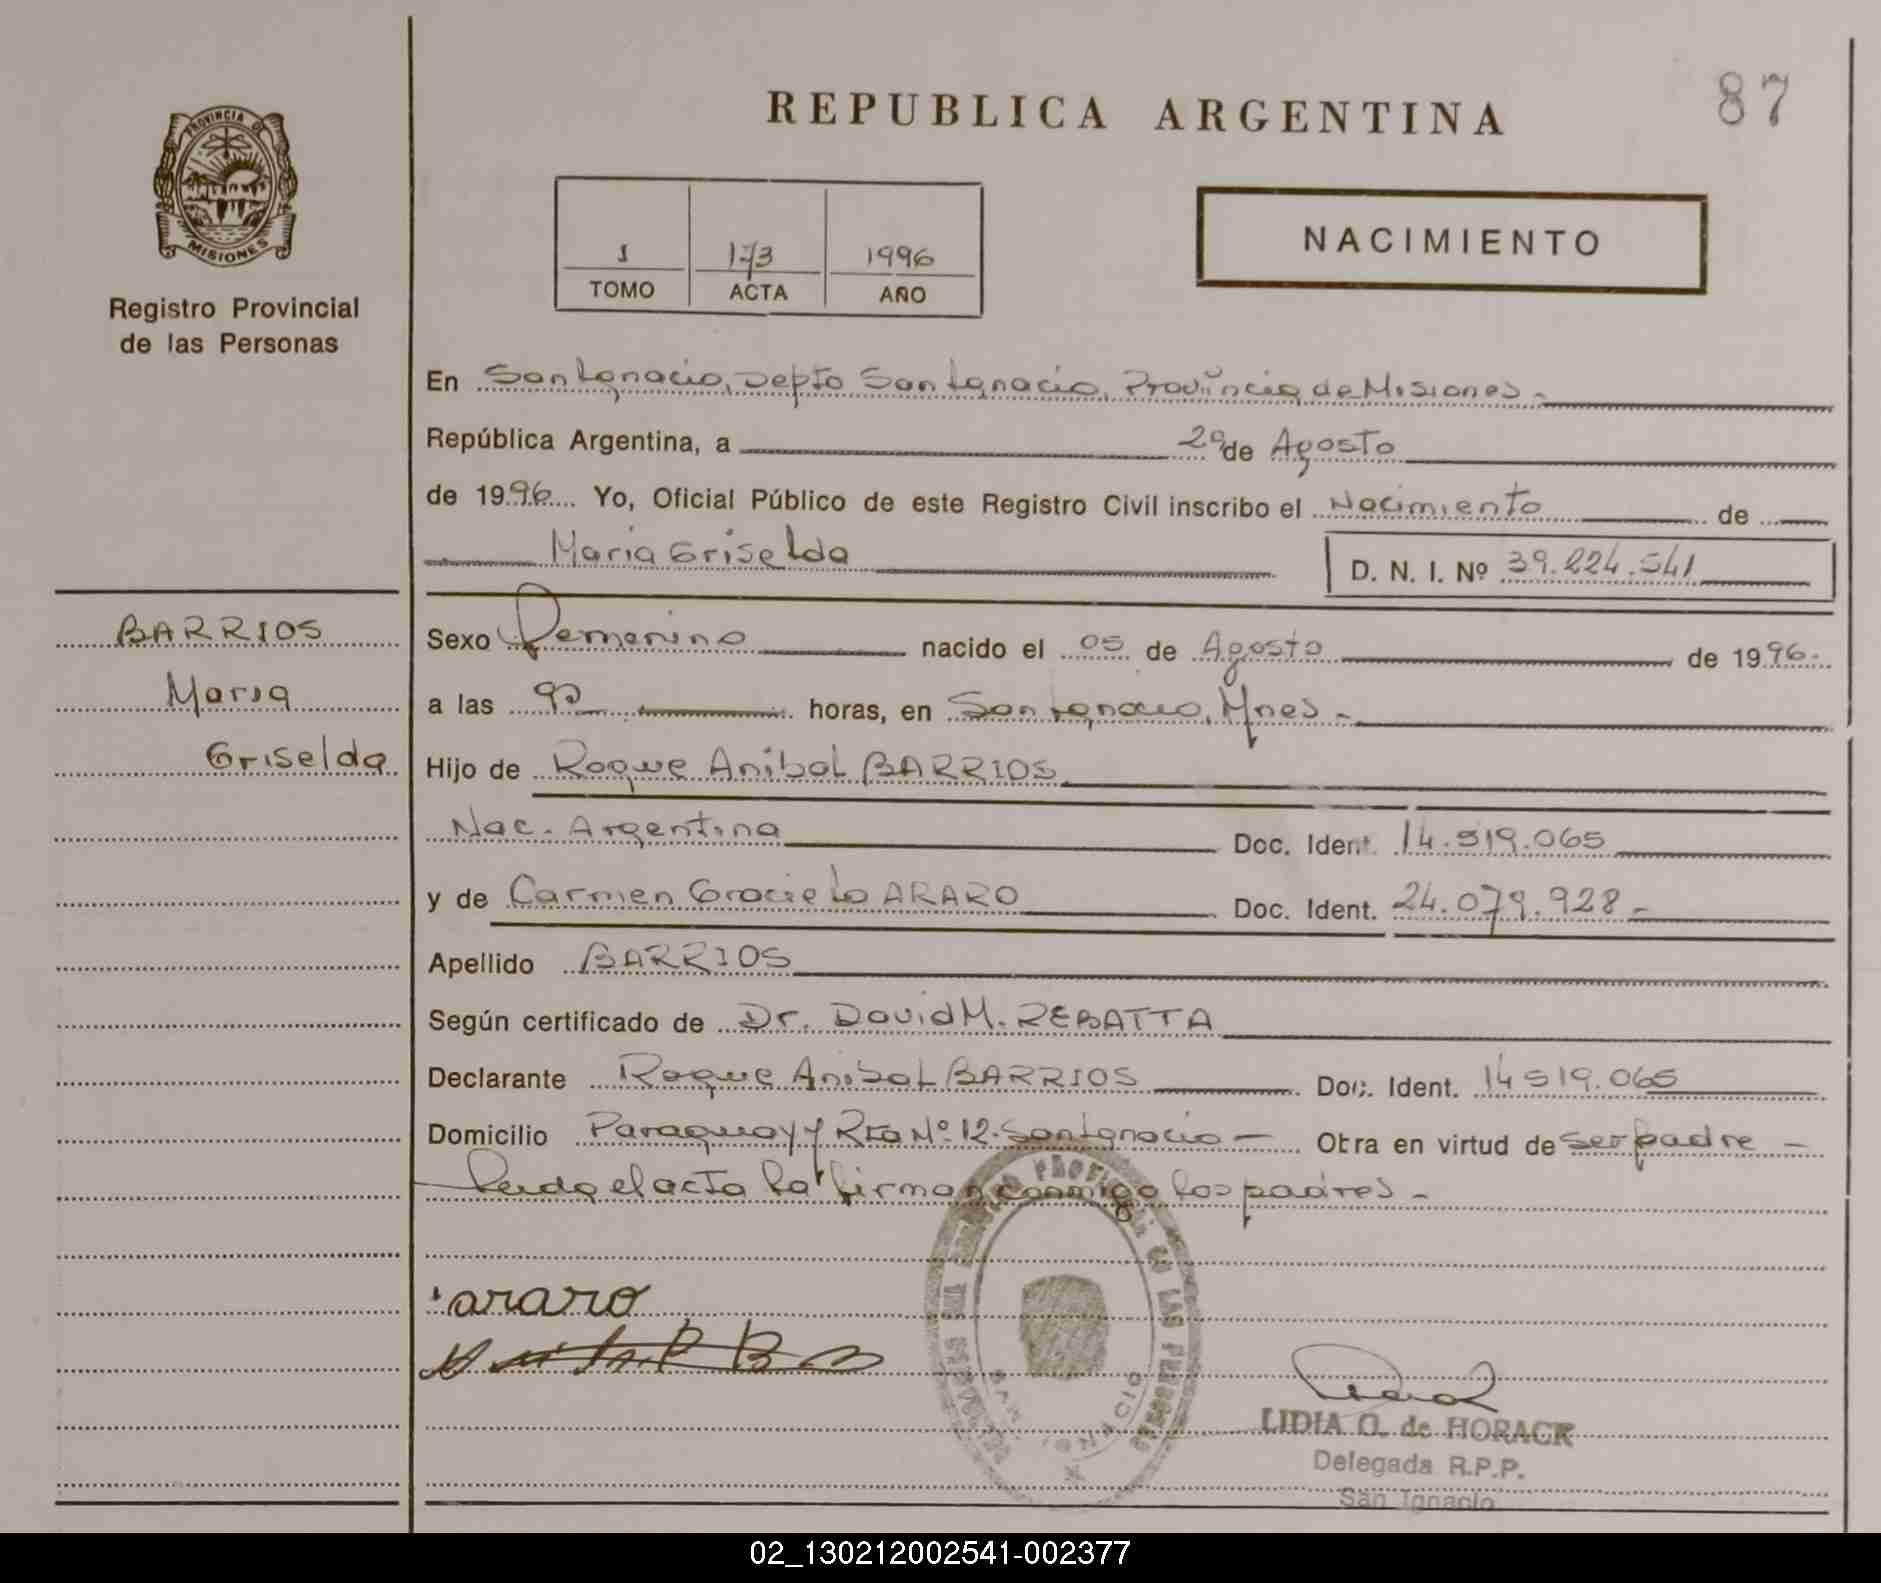 87
REPUBLICA ARGENTINA
PROVINCIA DE
MISIONES
Registro Provincial
de las Personas
1 173 1996
TOMO ACTA AÑO
NACIMIENTO
En San Ignacio, Depto San Ignacio, Provincia de Misiones.-
República Argentina, a de Agosto
de 1996 Yo, Oficial Público de este Registro Civil inscribo el Nacimiento de
Maria Griselda D. N. I. Nº 39.224.541
BARRIOS
Maria
Griselda
Sexo Femenino nacido el 05 de Agosto de 1996.-
a las horas, en San Ignacio, Mnes.-
Hijo de Roque Anibal BARRIOS
Nac. Argentina Doc. Ident. 14.519.065
y de Carmen Graciela ARARO Doc. Ident. 24.079.928-
Apellido BARRIOS
Según certificado de Dr. David M. REBATTA
Declarante Roque Anibal BARRIOS Doc. Ident. 14519.065
Domicilio Paraguay y Rta Nº 12. San Ignacio - Obra en virtud de ser padre -
Leida el acta la firman conmigo los padres.-
araro
LIDIA O. de HORACK
Delegada R.P.P.
San Ignacio
02_130212002541-002377